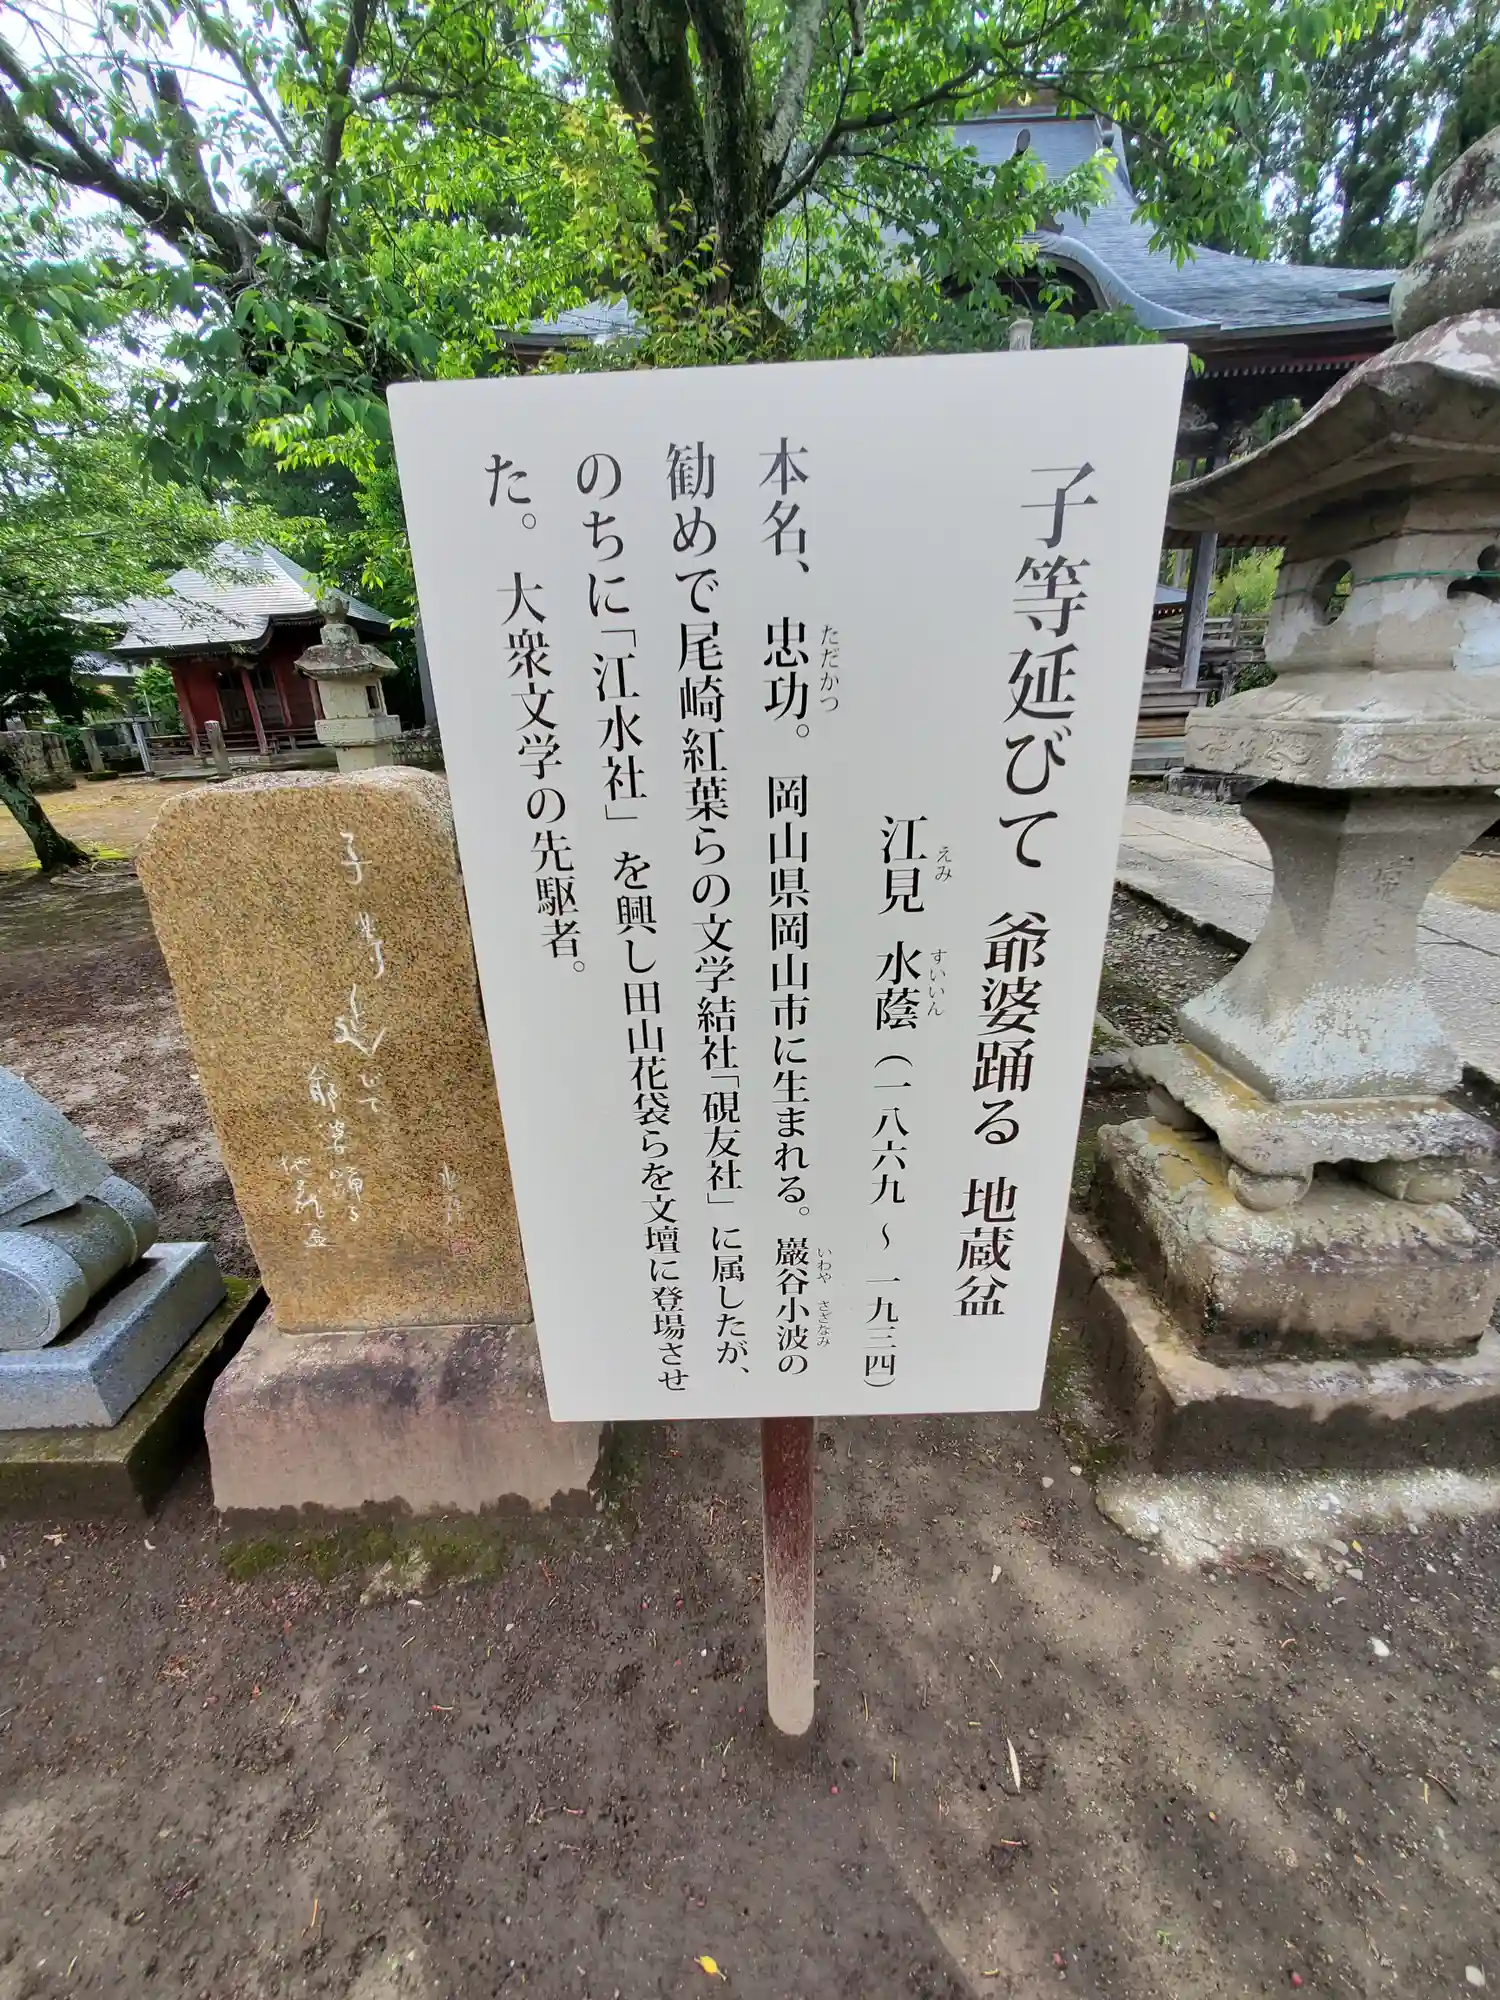 子等延びて 爺婆踊る 地蔵盆
江見 水蔭（一八六九～一九三四）
えみ すいいん
本名、忠功。岡山県岡山市に生まれる。巖谷小波の
ただかつ いわや さざなみ
勧めで尾崎紅葉らの文学結社「硯友社」に属したが、
のちに「江水社」を興し田山花袋らを文壇に登場させ
た。大衆文学の先駆者。
子等延びて
爺婆踊る
地蔵盆
水蔭